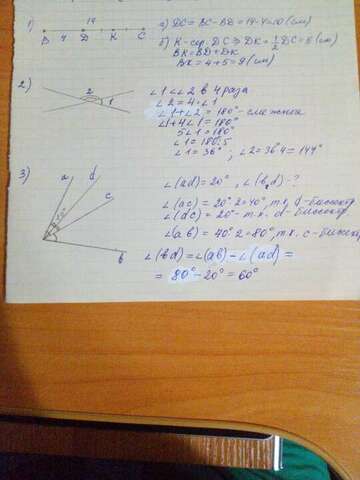 1)
14
B 4 D K C
а) DC = BC - BD = 14 - 4 = 10 (см)
б) K - сер. DC ⇒ DK = 1/2 DC = 5 (см)
BK = BD + DK
BK = 4 + 5 = 9 (см)
2)
2
1
∠1 < ∠2 в 4 раза
∠2 = 4·∠1
∠1 + ∠2 = 180° - смежные
∠1 + 4∠1 = 180°
5∠1 = 180°
∠1 = 180:5
∠1 = 36° ; ∠2 = 36·4 = 144°
3)
a d c b
20°
∠(ad) = 20° , ∠(b,d) - ?
∠(ac) = 20°·2 = 40°, т.к. d - биссектр
∠(dc) = 20° - т.к. d - биссектр.
∠(ab) = 40°·2 = 80°, т.к. c - биссектр
∠(bd) = ∠(ab) - ∠(ad) =
= 80° - 20° = 60°